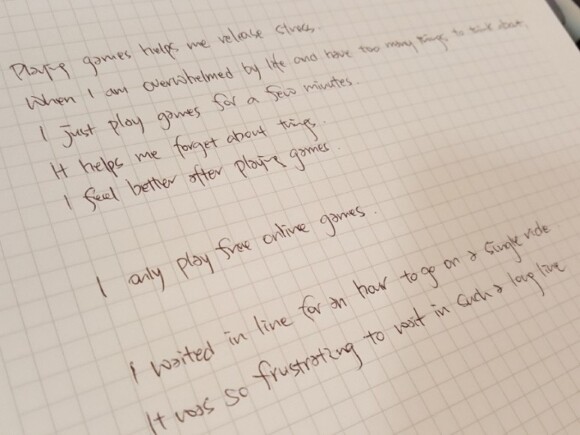 Playing games helps me release stress.
When I am overwhelmed by life and have too many things to think about,
I just play games for a few minutes.
It helps me forget about things.
I feel better after playing games.
I only play free online games.
I waited in line for an hour to go on a single ride
It was so frustrating to wait in such a long line